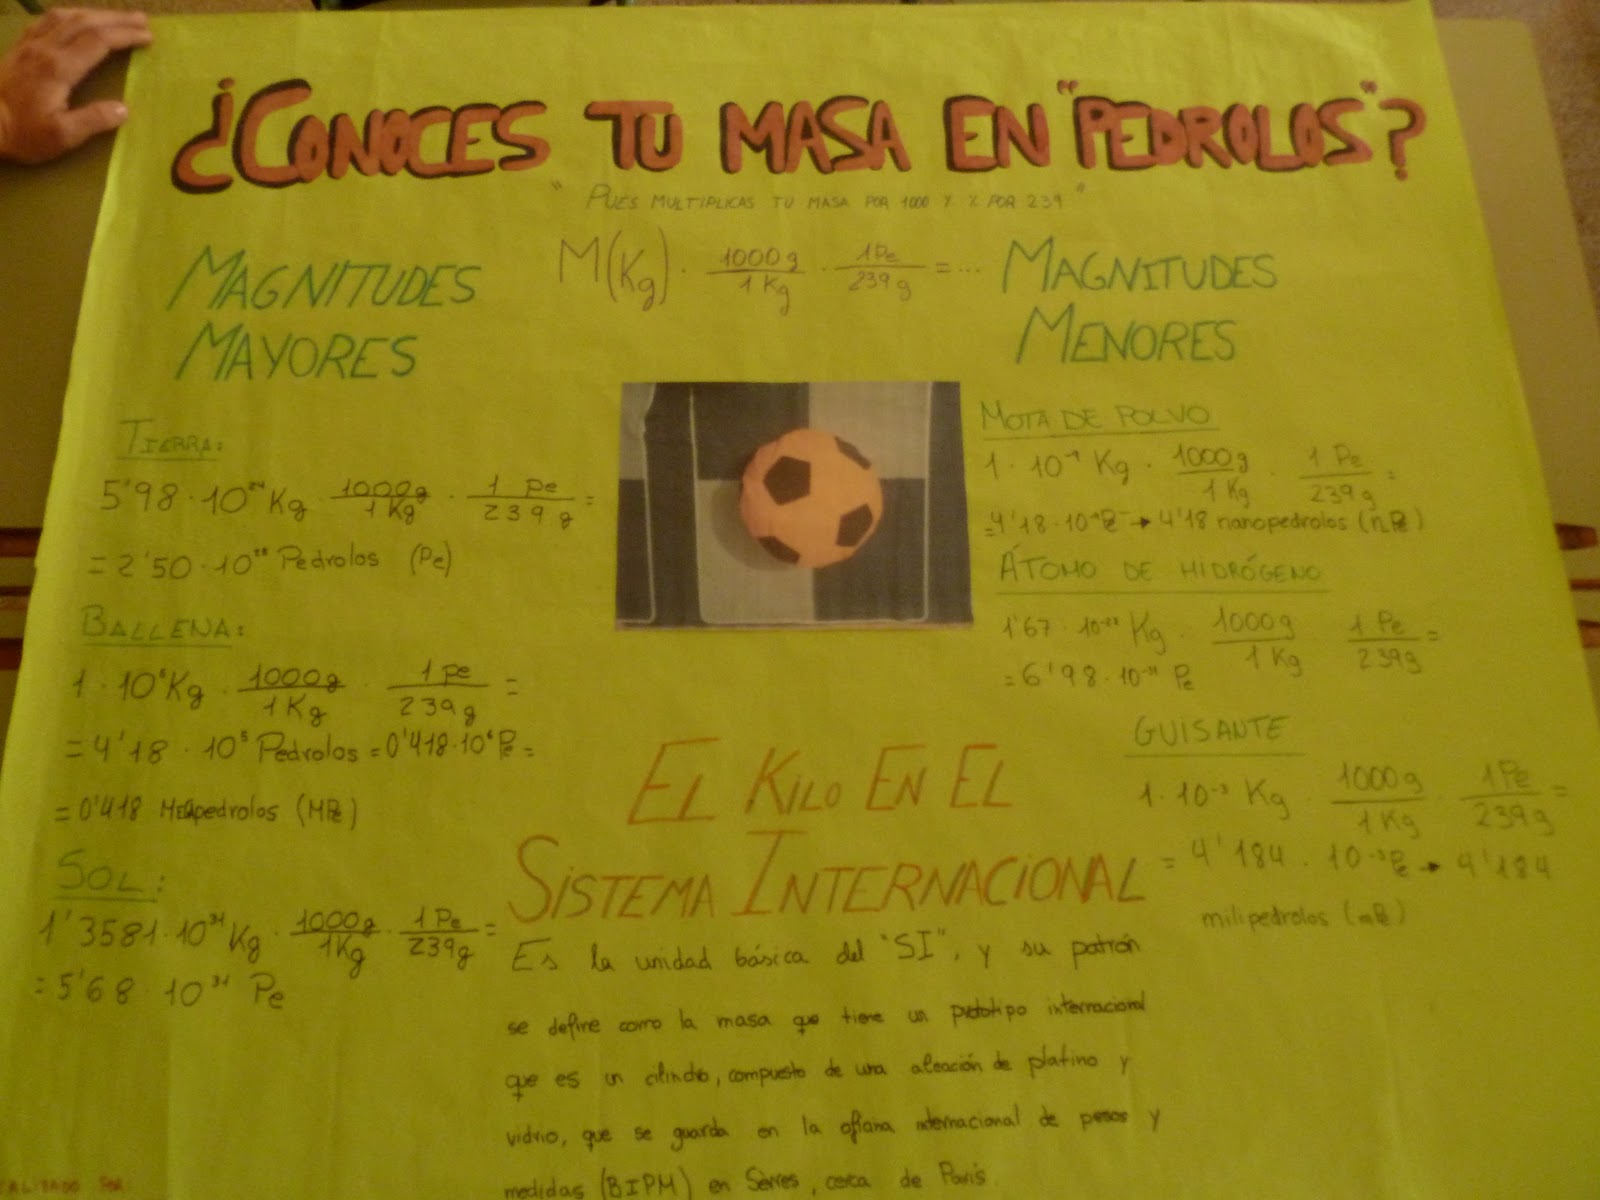 ¿CONOCES TU MASA EN "PEDROLOS"?
"PUES MULTIPLICAS TU MASA POR 1000 Y % POR 239"
M(Kg) · 1000g/1Kg · 1Pe/239g = ...
MAGNITUDES
MAYORES
TIERRA:
5'98 · 10²⁴ Kg 1000g/1Kg · 1 pe/239 g =
= 2'50 · 10²⁸ Pedrolos (Pe)
BALLENA:
1 · 10⁶ Kg · 1000g/1Kg · 1 pe/239g =
= 4'18 · 10⁵ Pedrolos = 0'418 · 10⁶ Pe =
= 0'418 MEGApedrolos (MPe)
SOL:
1'3581 · 10³¹ Kg · 1000g/1Kg · 1 Pe/239g =
= 5'68 · 10³¹ Pe
MAGNITUDES
MENORES
MOTA DE POLVO
1 · 10 Kg · 1000g/1Kg · 1 Pe/239g =
= 4'18 · 10 Pe → 4'18 nanopedrolos (nPe)
ÁTOMO DE HIDRÓGENO
1'67 · 10 Kg · 1000g/1Kg 1 Pe/239g =
= 6'98 · 10 Pe
GUISANTE
1 · 10⁻³ Kg · 1000g/1Kg · 1Pe/239g =
= 4'184 · 10⁻³ Pe → 4'184
milipedrolos (mPe)
EL KILO EN EL
SISTEMA INTERNACIONAL
Es la unidad básica del "SI", y su patrón
se define como la masa que tiene un prototipo internacional
que es un cilindro, compuesto de una aleación de platino y
vidrio, que se guarda en la oficina internacional de pesos y
medidas (BIPM) en Sèvres, cerca de París.
REALIZADO POR: